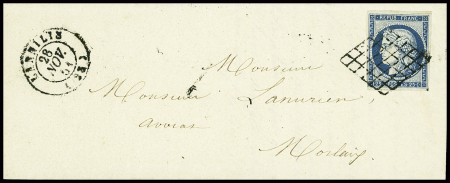 LANNILIS
28
NOV.
51
(28)
REPUB. FRANC.
Monsieur
Monsieur Lanurien
avocat
Morlaix